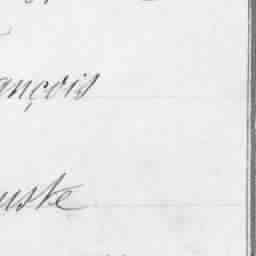 ançois
uste